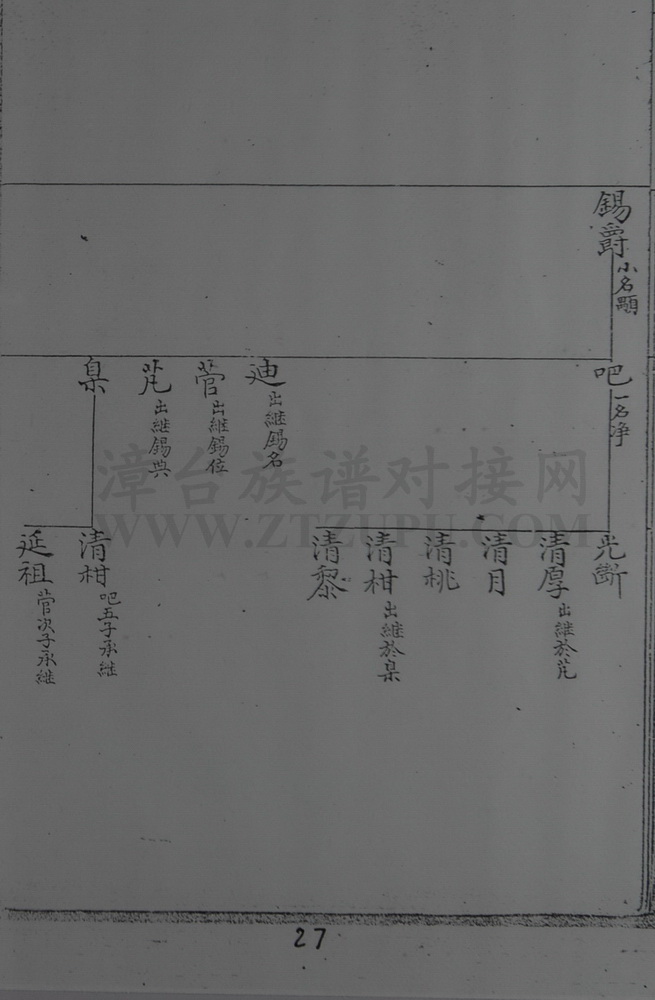 錫爵
小名顯
吧
一名净
迪
出継錫名
菅
出継錫位
芃
出継錫典
臬
光斷
清厚
出継於芃
清月
清桃
清柑
出継於臬
清黎
清柑
吧五子承継
延祖
菅次子承継
漳台族谱对接网
WWW.ZTZUPU.COM
27